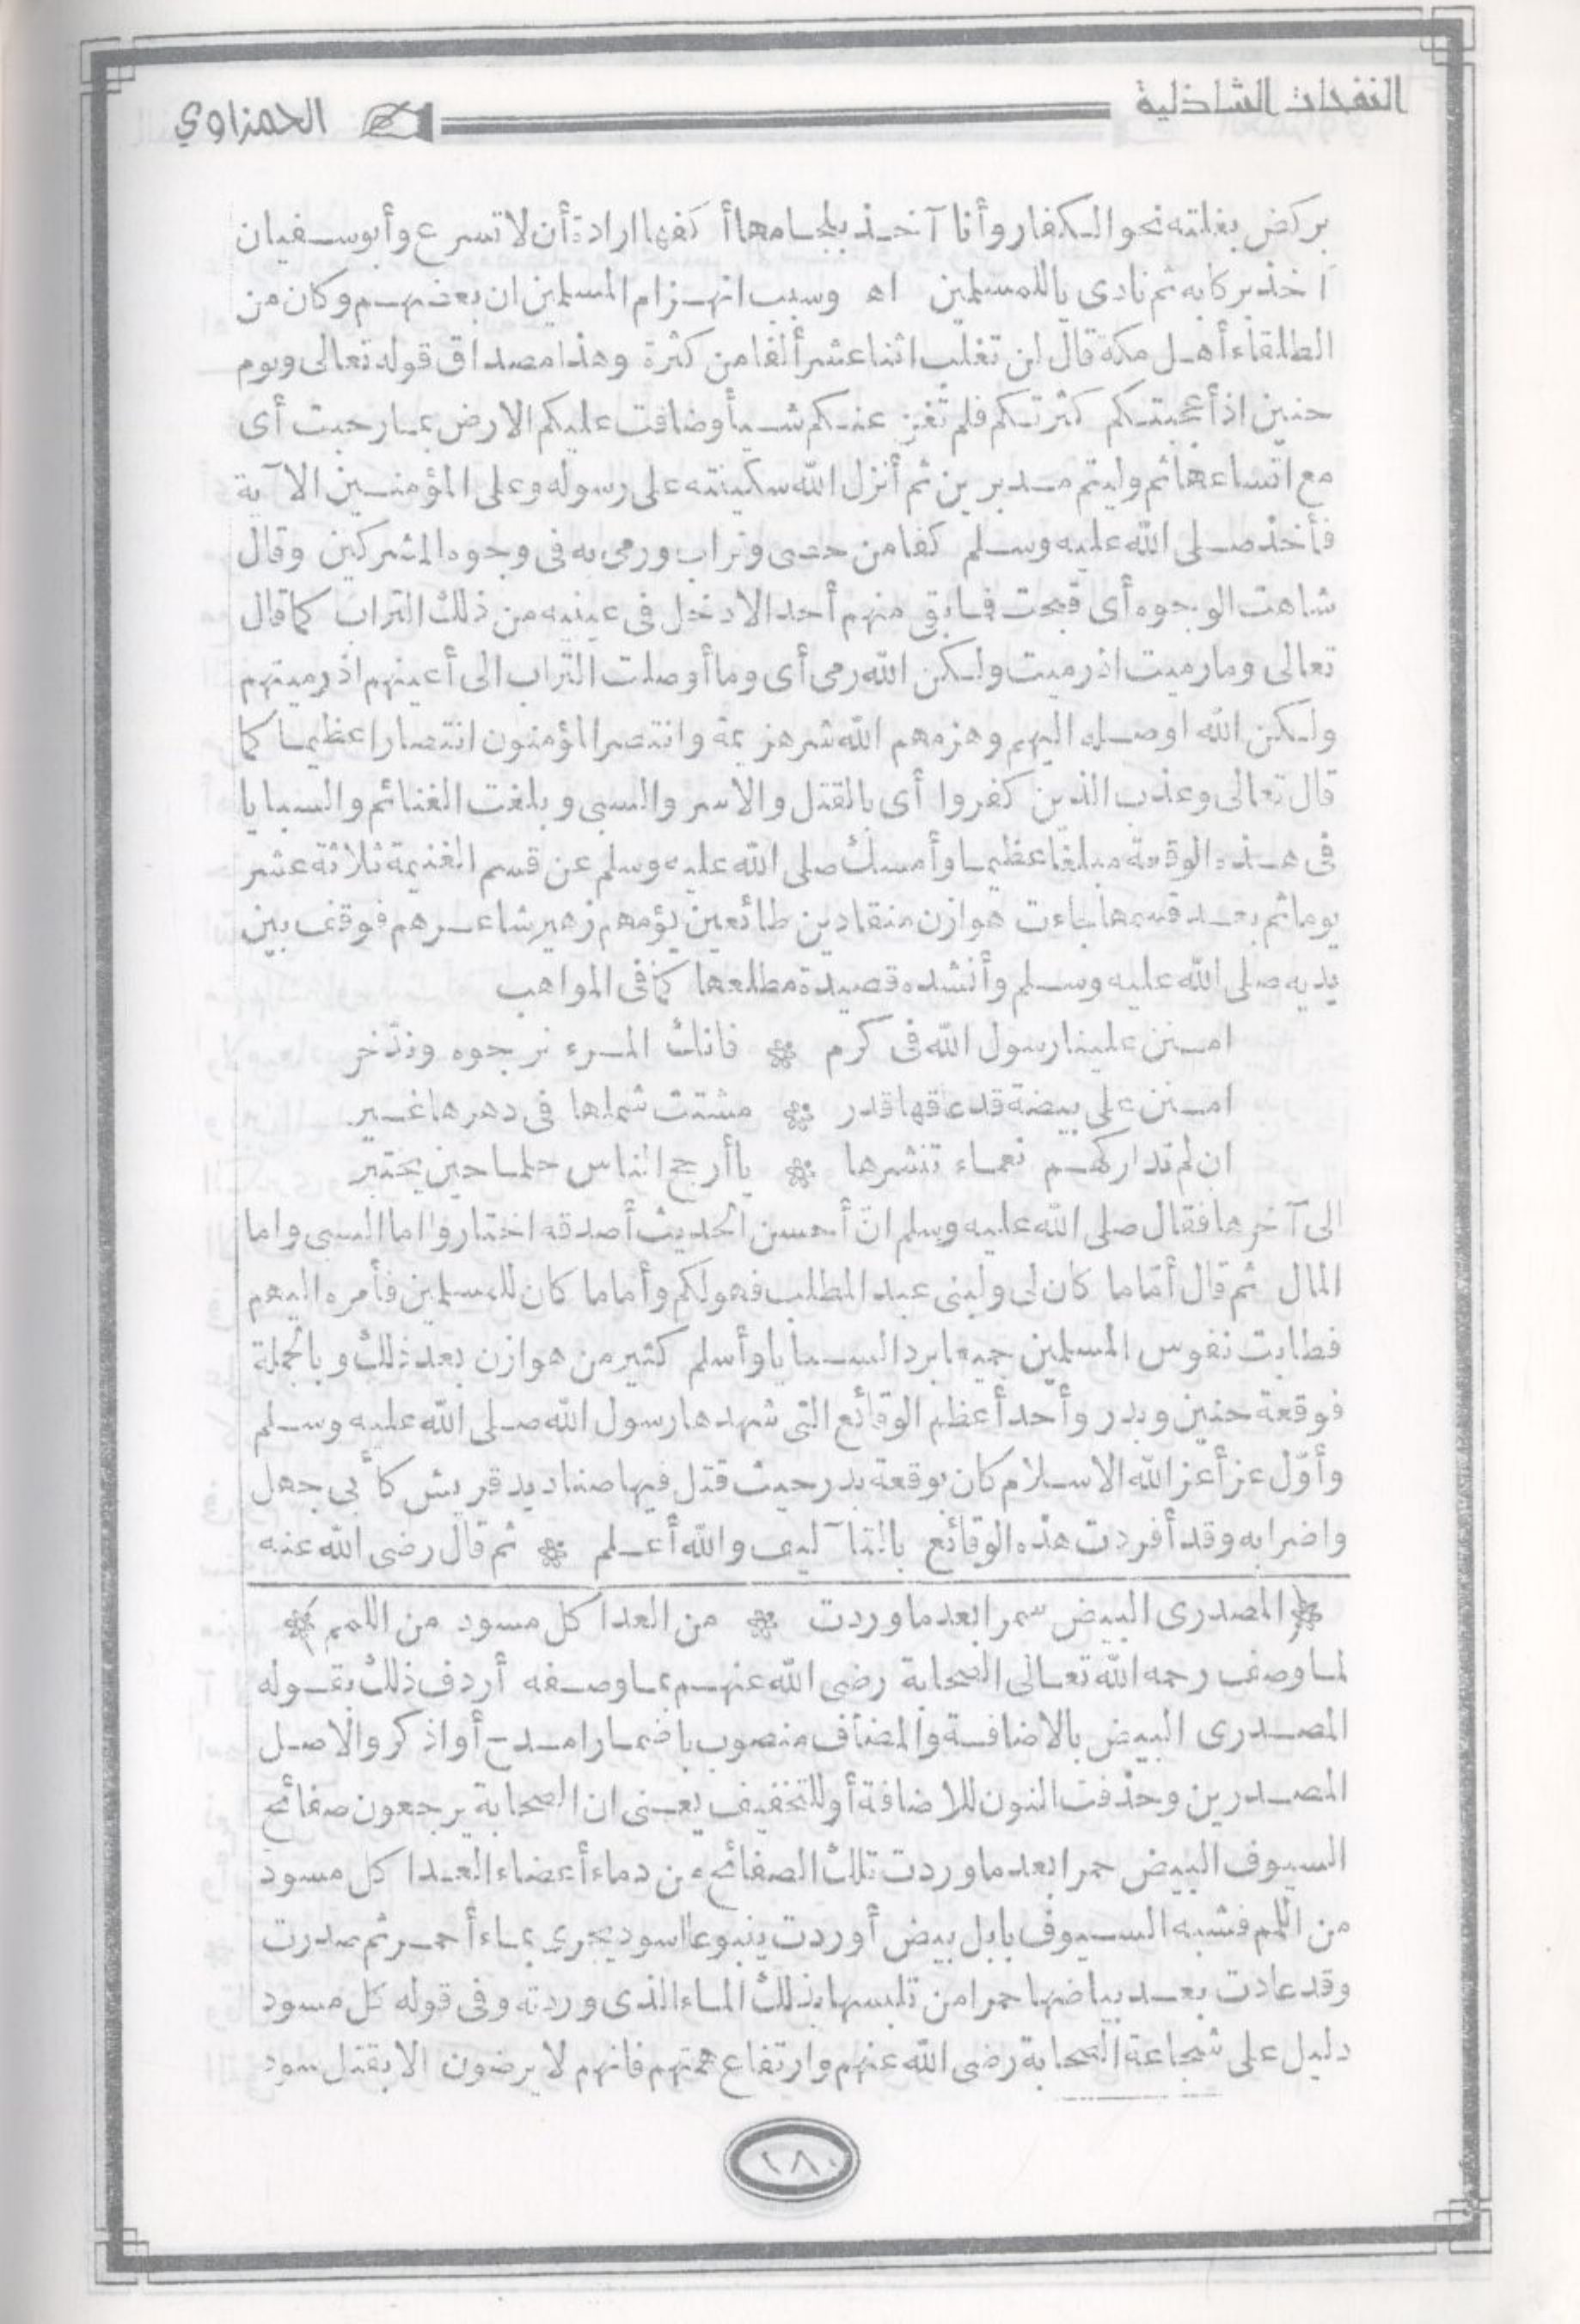 النفحات الشاذلية
الحمزاوي
يركض بغلته نحو الكفار وأنا آخذ بلجامها أكفها ارادة أن لا تسرع وأبو سفيان
آخذ بركابه ثم نادى ياللمسلمين اه وسبب انهزام المسلمين ان بعضهم وكان من
الطلقاء أهل مكة قال لن تغلب اثنا عشر ألفا من كثرة وهذا مصداق قوله تعالى ويوم
حنين اذ أعجبتكم كثرتكم فلم تغن عنكم شيأ وضاقت عليكم الارض بما رحبت أى
مع اتساعها ثم وليتم مدبرين ثم أنزل الله سكينته على رسوله وعلى المؤمنين الآية
فأخذ صلى الله عليه وسلم كفا من حصى وتراب ورمى به فى وجوه المشركين وقال
شاهت الوجوه أى قبحت فما بقى منهم أحد الا دخل فى عينيه من ذلك التراب كما قال
تعالى وما رميت اذ رميت ولكن الله رمى أى وما أوصلت التراب الى أعينهم اذ رميتهم
ولكن الله اوصله اليهم وهزمهم الله شر هزيمة وانتصر المؤمنون انتصارا عظيما كما
قال تعالى وعذب الذين كفروا أى بالقتل والاسر والسبى وبلغت الغنائم والسبايا
فى هذه الوقعة مبلغا عظيما وأمسك صلى الله عليه وسلم عن قسم الغنيمة ثلاثة عشر
يوما ثم بعد قسمها جاءت هوازن منقادين طائعين يؤمهم زهير شاعرهم فوقف بين
يديه صلى الله عليه وسلم وأنشده قصيدة مطلعها كما فى المواهب
امنن علينا رسول الله فى كرم * فانك المرء نرجوه وندّخر
امنن على بيضة قد عاقها قدر * مشتت شملها فى دهرها غير
ان لم تداركهم نعماء تنشرها * يا أرجح الناس حلما حين يختبر
الى آخرها فقال صلى الله عليه وسلم انّ أحسن الحديث أصدقه اختاروا اما السبى واما
المال ثم قال أمّا ما كان لى ولبنى عبد المطلب فهو لكم وأما ما كان للمسلمين فأمره اليهم
فطابت نفوس المسلمين جميعا برد السبايا وأسلم كثير من هوازن بعد ذلك وبالجملة
فوقعة حنين وبدر وأحد أعظم الوقائع التى شهدها رسول الله صلى الله عليه وسلم
وأوّل عز أعز الله الاسلام كان بوقعة بدر حيث قتل فيها صناديد قريش كأبى جهل
واضرابه وقد أفردت هذه الوقائع بالتآليف والله أعلم * ثم قال رضى الله عنه
* المصدرى البيض حمرا بعد ما وردت * من العدا كل مسود من اللمم *
لما وصف رحمه الله تعالى الصحابة رضى الله عنهم بما وصفه أردف ذلك بقوله
المصدرى البيض بالاضافة والمضاف منصوب باضمار امدح أو اذكر والاصل
المصدرين وحذفت النون للاضافة أو للتخفيف يعنى ان الصحابة يرجعون صفائح
السيوف البيض حمرا بعد ما وردت تلك الصفائح من دماء أعضاء العدا كل مسود
من اللمم فشبه السيوف بابل بيض أوردت ينبوعا اسود يجرى بماء أحمر ثم صدرت
وقد عادت بعد بياضها حمرا من تلبسها بذلك الماء الذى وردته وفى قوله كل مسود
دليل على شجاعة الصحابة رضى الله عنهم وارتفاع همتهم فانهم لا يرضون الا بقتل سود
٢٨٠